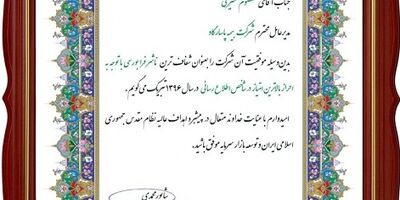 جناب آقای معصوم ضمیری
مدیرعامل محترم شرکت بیمه پاسارگاد
بدین وسیله موفقیت آن شرکت را بعنوان شفاف ترین ناشر فرابورسی با توجه به
احراز بالاترین امتیاز در شاخص اطلاع رسانی در سال ۱۳۹۶ تبریک می گویم.
امیدوارم با عنایت خداوند متعال در پیشبرد اهداف عالیه نظام مقدس جمهوری
اسلامی ایران و توسعه بازار سرمایه موفق باشید.
شاپور محمدی